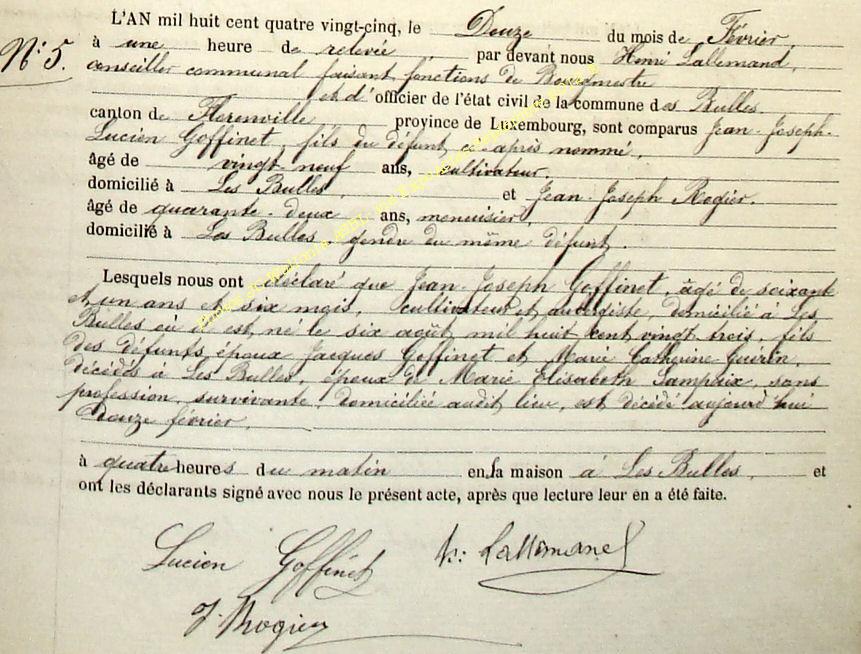 L'AN mil huit cent quatre vingt-cinq, le Douze du mois de Février
N° 5.
à une heure de relevée par devant nous Henri Lallemand,
conseiller communal faisant fonctions de Bourgmestre
et d'officier de l'état civil de la commune des Bulles
canton de Florenville province de Luxembourg, sont comparus Jean-Joseph-
Lucien Goffinet, fils du défunt ci-après nommé,
âgé de vingt-neuf ans, cultivateur.
domicilié à Les Bulles, et Jean-Joseph Rogier.
âgé de quarante-deux ans, menuisier,
domicilié à Les Bulles, gendre du même défunt.
Lesquels nous ont déclaré que Jean-Joseph Goffinet, âgé de soixante
et un ans et six mois, cultivateur et aubergiste, domicilié à Les
Bulles où il est né le six août mil huit cent vingt trois, fils
des défunts époux Jacques Goffinet et Marie Catherine Guérin,
décédés à Les Bulles, époux de Marie Elisabeth Lampaix, sans
profession, survivante, domiciliée audit lieu, est décédé aujourd'hui
douze février,
à quatre heures du matin en sa maison à Les Bulles, et
ont les déclarants signé avec nous le présent acte, après que lecture leur en a été faite.
Lucien Goffinet h: Lallemand
J. Rogier